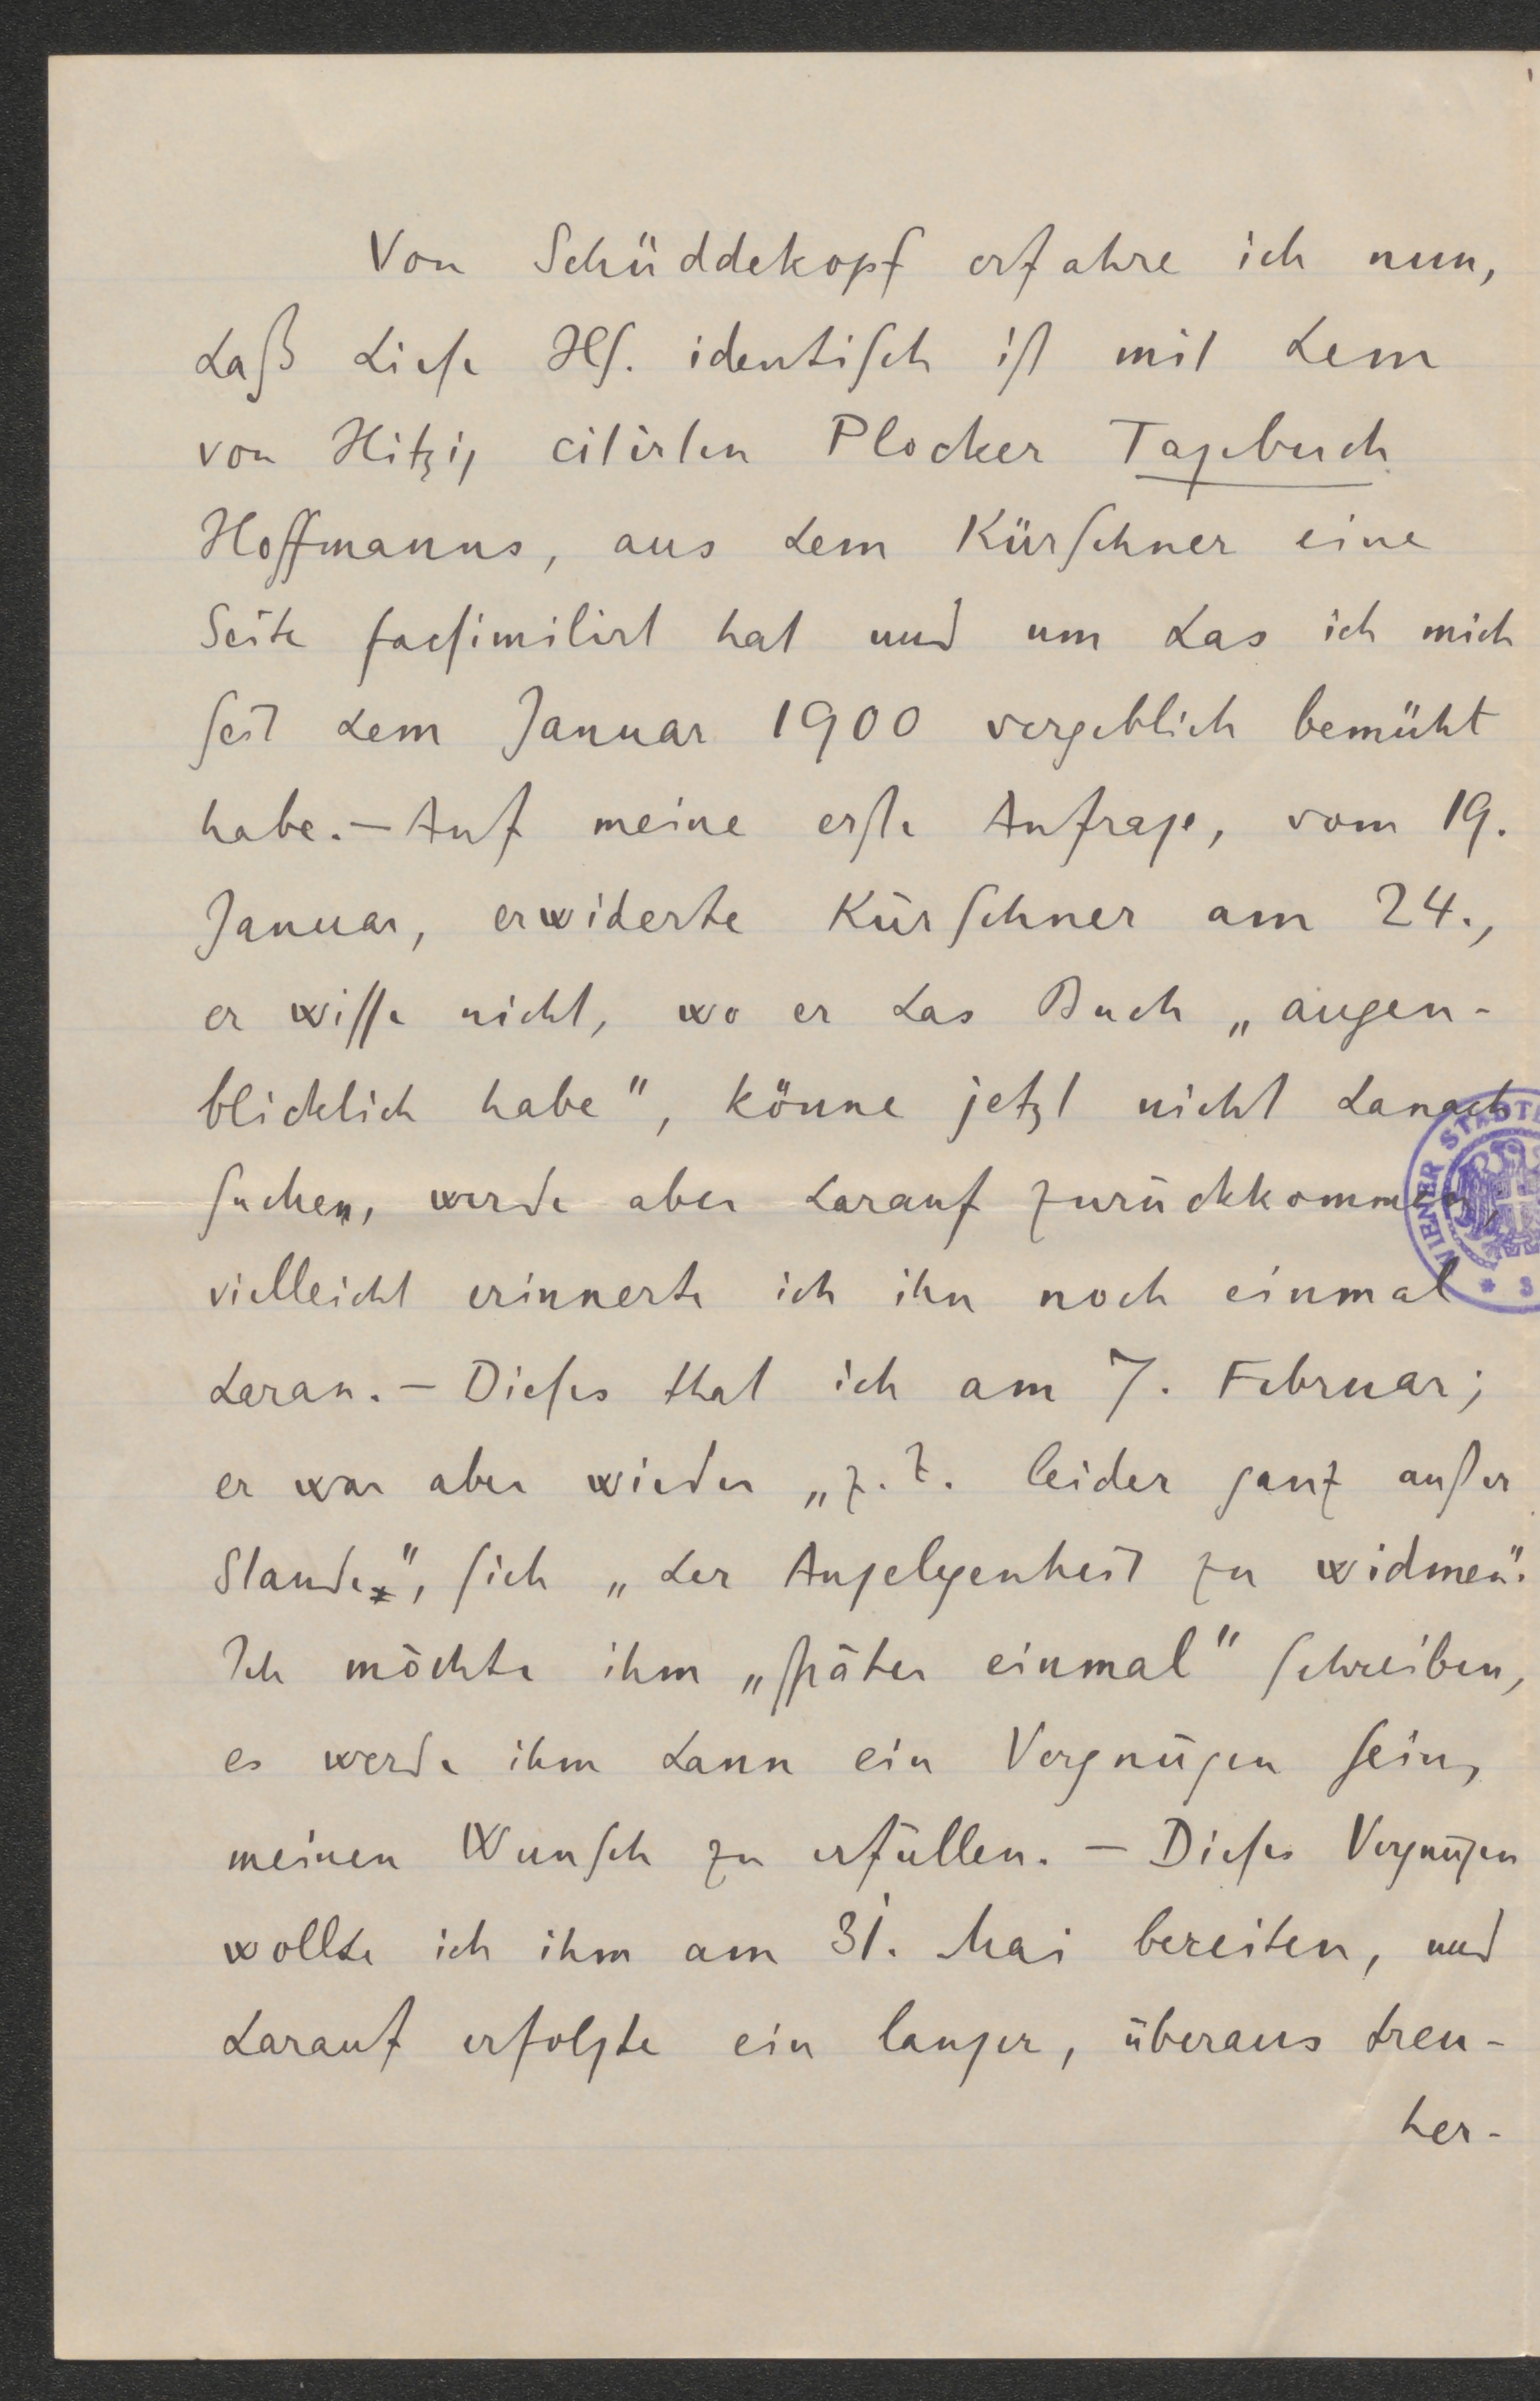 Von Schüddekopf erfahre ich nun,
daß diese Hs. identisch ist mit dem
von Hitzig citirten Plocker Tagebuch
Hoffmanns, aus dem Kürschner eine
Seite facsimilirt hat und um das ich mich
seit dem Januar 1900 vergeblich bemüht
habe. – Auf meine erste Anfrage, vom 19.
Januar, erwiderte Kürschner am 24.,
er wisse nicht, wo er das Buch „augen-
blicklich habe“, könne jetzt nicht danach
suchen, werde aber darauf zurückkommen,
vielleicht erinnerte ich ihn noch einmal
daran. – Dieses that ich am 7. Februar;
er war aber wieder „z. Z. leider ganz außer
Stande“, sich „der Angelegenheit zu widmen“.
Ich möchte ihm „später einmal“ schreiben,
es werde ihm dann ein Vergnügen sein,
meinen Wunsch zu erfüllen. – Dieses Vergnügen
wollte ich ihm am 31. Mai bereiten, und
darauf erfolgte ein langer, überaus treu-
her-
WIENER STADT